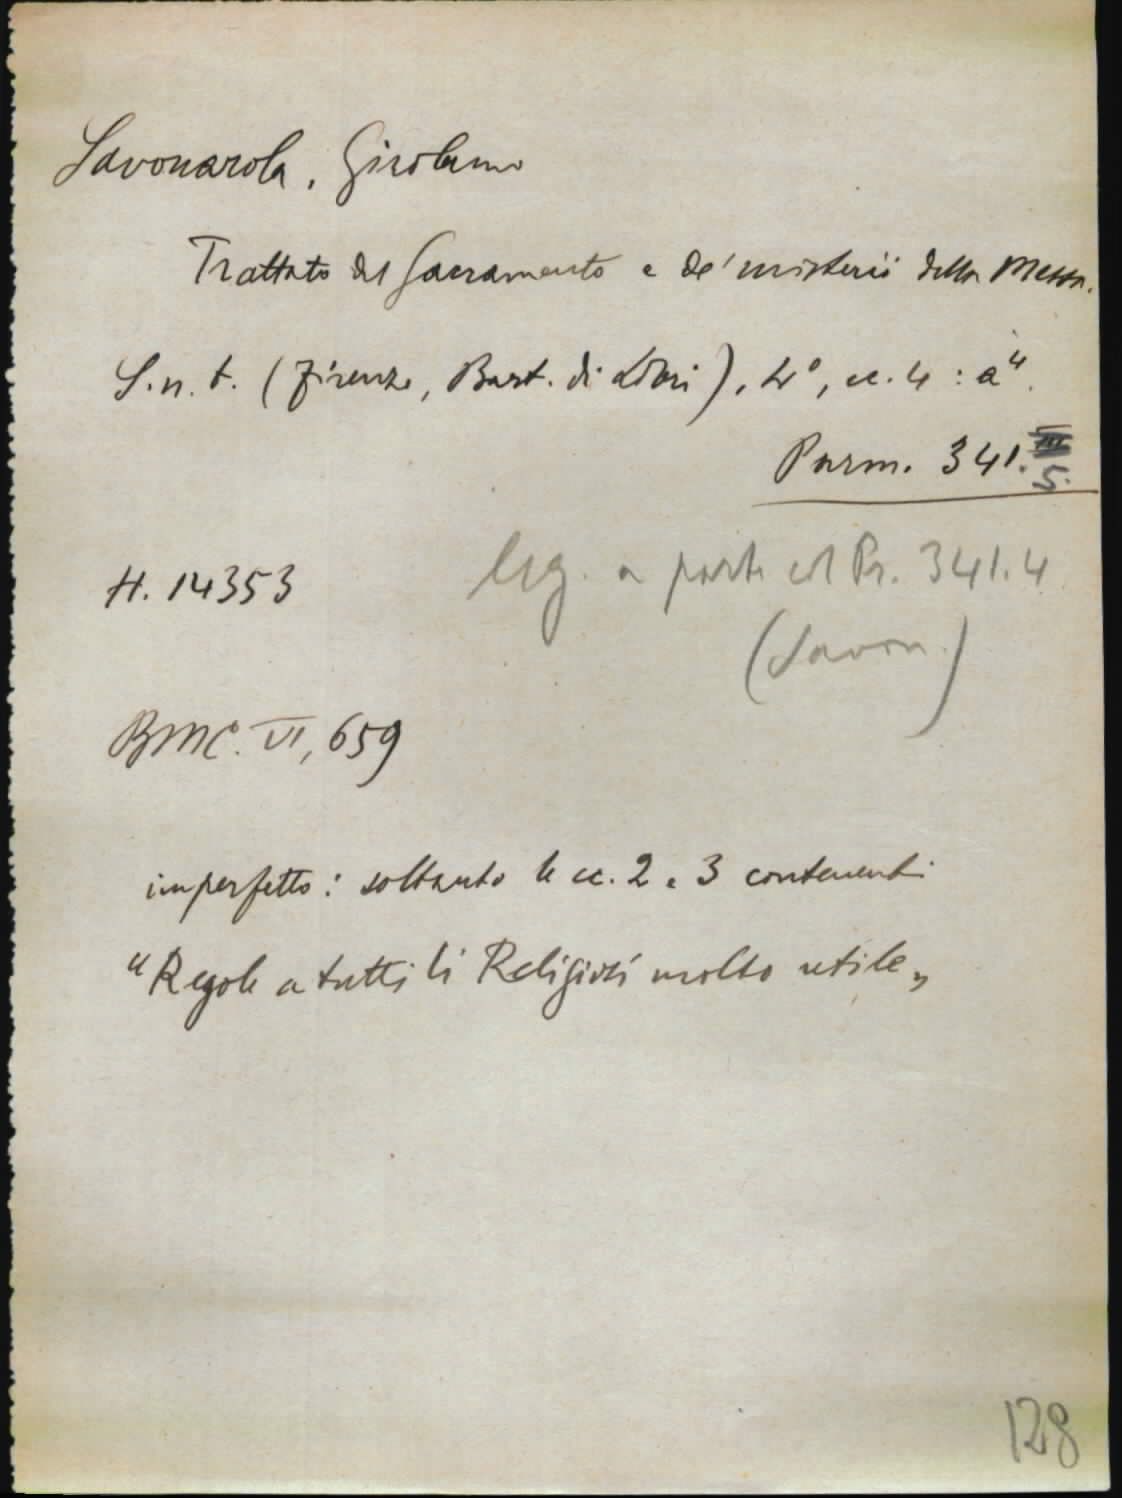 Savonarola, Girolamo
Trattato del Sacramento e de' misterii della Messa.
S.n.t. (Firenze, Bart. di Libri), 4°, cc. 4 : a⁴.
Parm. 341.5.
H. 14353
leg. a parte col Pr. 341.4
(Savon.)
BMC. VI, 659
imperfetto: soltanto le cc. 2 e 3 contenenti
“Regole a tutti li Religiosi molto utile„
128